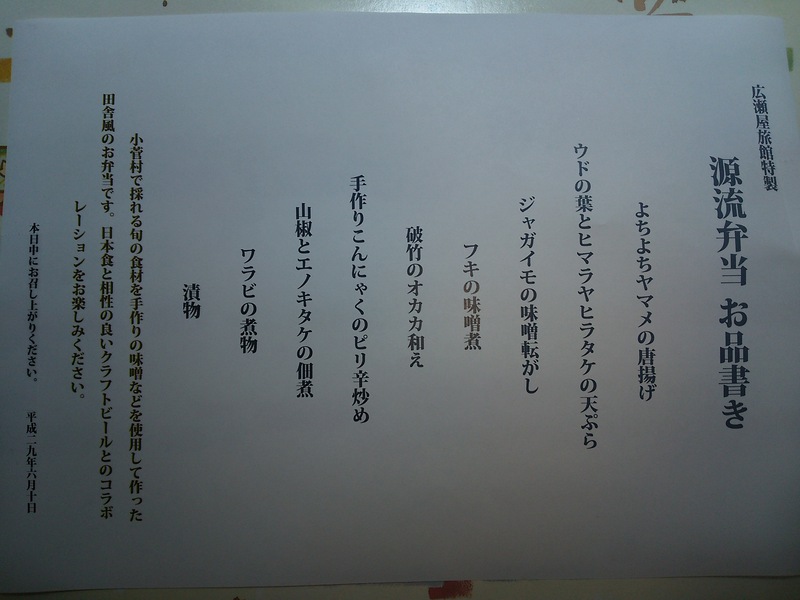 広瀬屋旅館特製
源流弁当 お品書き
よちよちヤマメの唐揚げ
ウドの葉とヒマラヤヒラタケの天ぷら
ジャガイモの味噌転がし
フキの味噌煮
破竹のオカカ和え
手作りこんにゃくのピリ辛炒め
山椒とエノキタケの佃煮
ワラビの煮物
漬物
小菅村で採れる旬の食材を手作りの味噌などを使用して作った
田舎風のお弁当です。日本食と相性の良いクラフトビールとのコラボ
レーションをお楽しみください。
本日中にお召し上がりください。 平成二九年六月十日